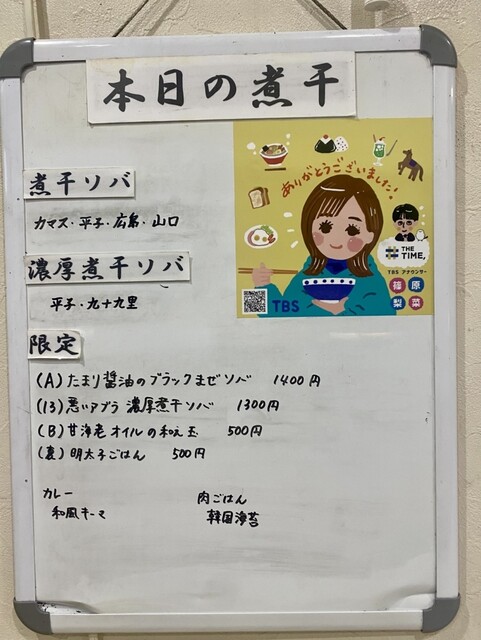 本日の煮干
煮干ソバ
カマス・平子・広島・山口
濃厚煮干ソバ
平子・九十九里
限定
(A) たまり醤油のブラックまぜソバ 1400円
(13) 悪いアブラ 濃厚煮干ソバ 1300円
(B) 甘海老オイルの和え玉 500円
(裏) 明太子ごはん 500円
カレー
和風キーマ
肉ごはん
韓国海苔
ありがとうございました!
THE TIME,
TBS アナウンサー
篠原
梨菜
TBS